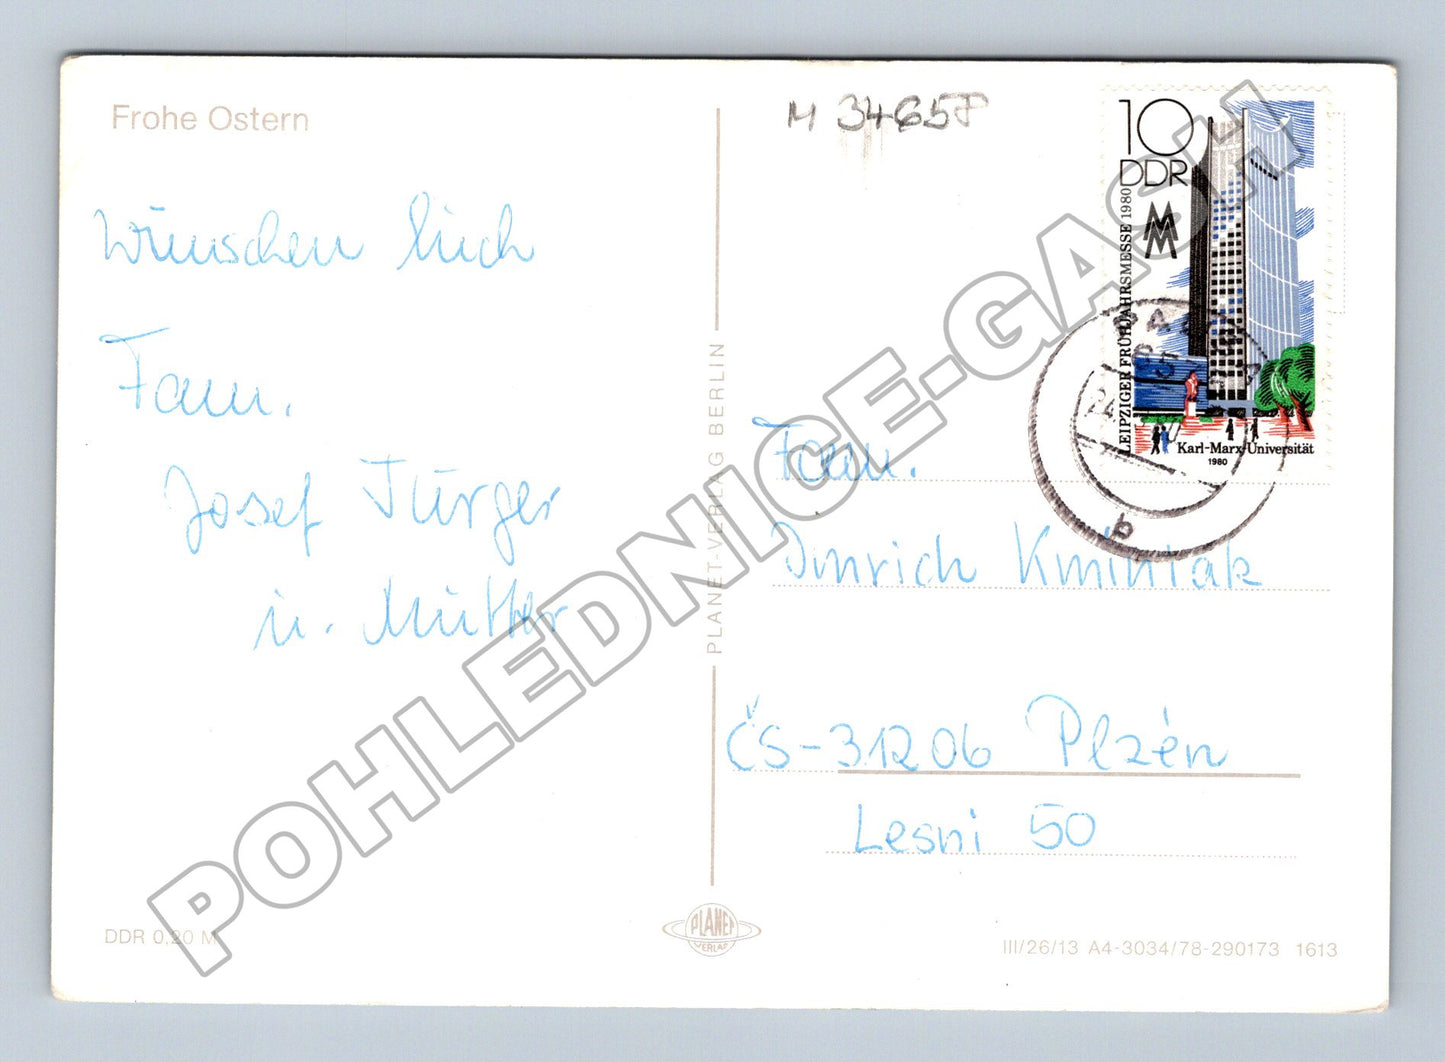 Frohe Ostern
M 3465P
10
DDR
LEIPZIGER FRÜHJAHRSMESSE 1980
MM
Karl-Marx-Universität
1980
b
Wünschen Euch
Fam.
Josef Türger
u. Mutter
PLANET-VERLAG BERLIN
Fam.
Imrich Kmintak
ČS-31206 Plzén
Lesni 50
DDR 0,20 M
PLANET
VERLAG
III/26/13 A4-3034/78-290173 1613
POHLEDNICE-GASH